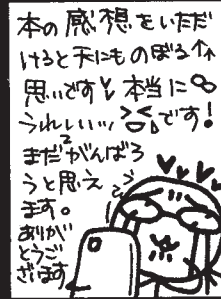 本の感想をいただ
けると天にものぼる
思いです♥本当に
うれしいッッです!
まだまだがんばろ
うと思え
ます。
ありが
とうご
ざいます